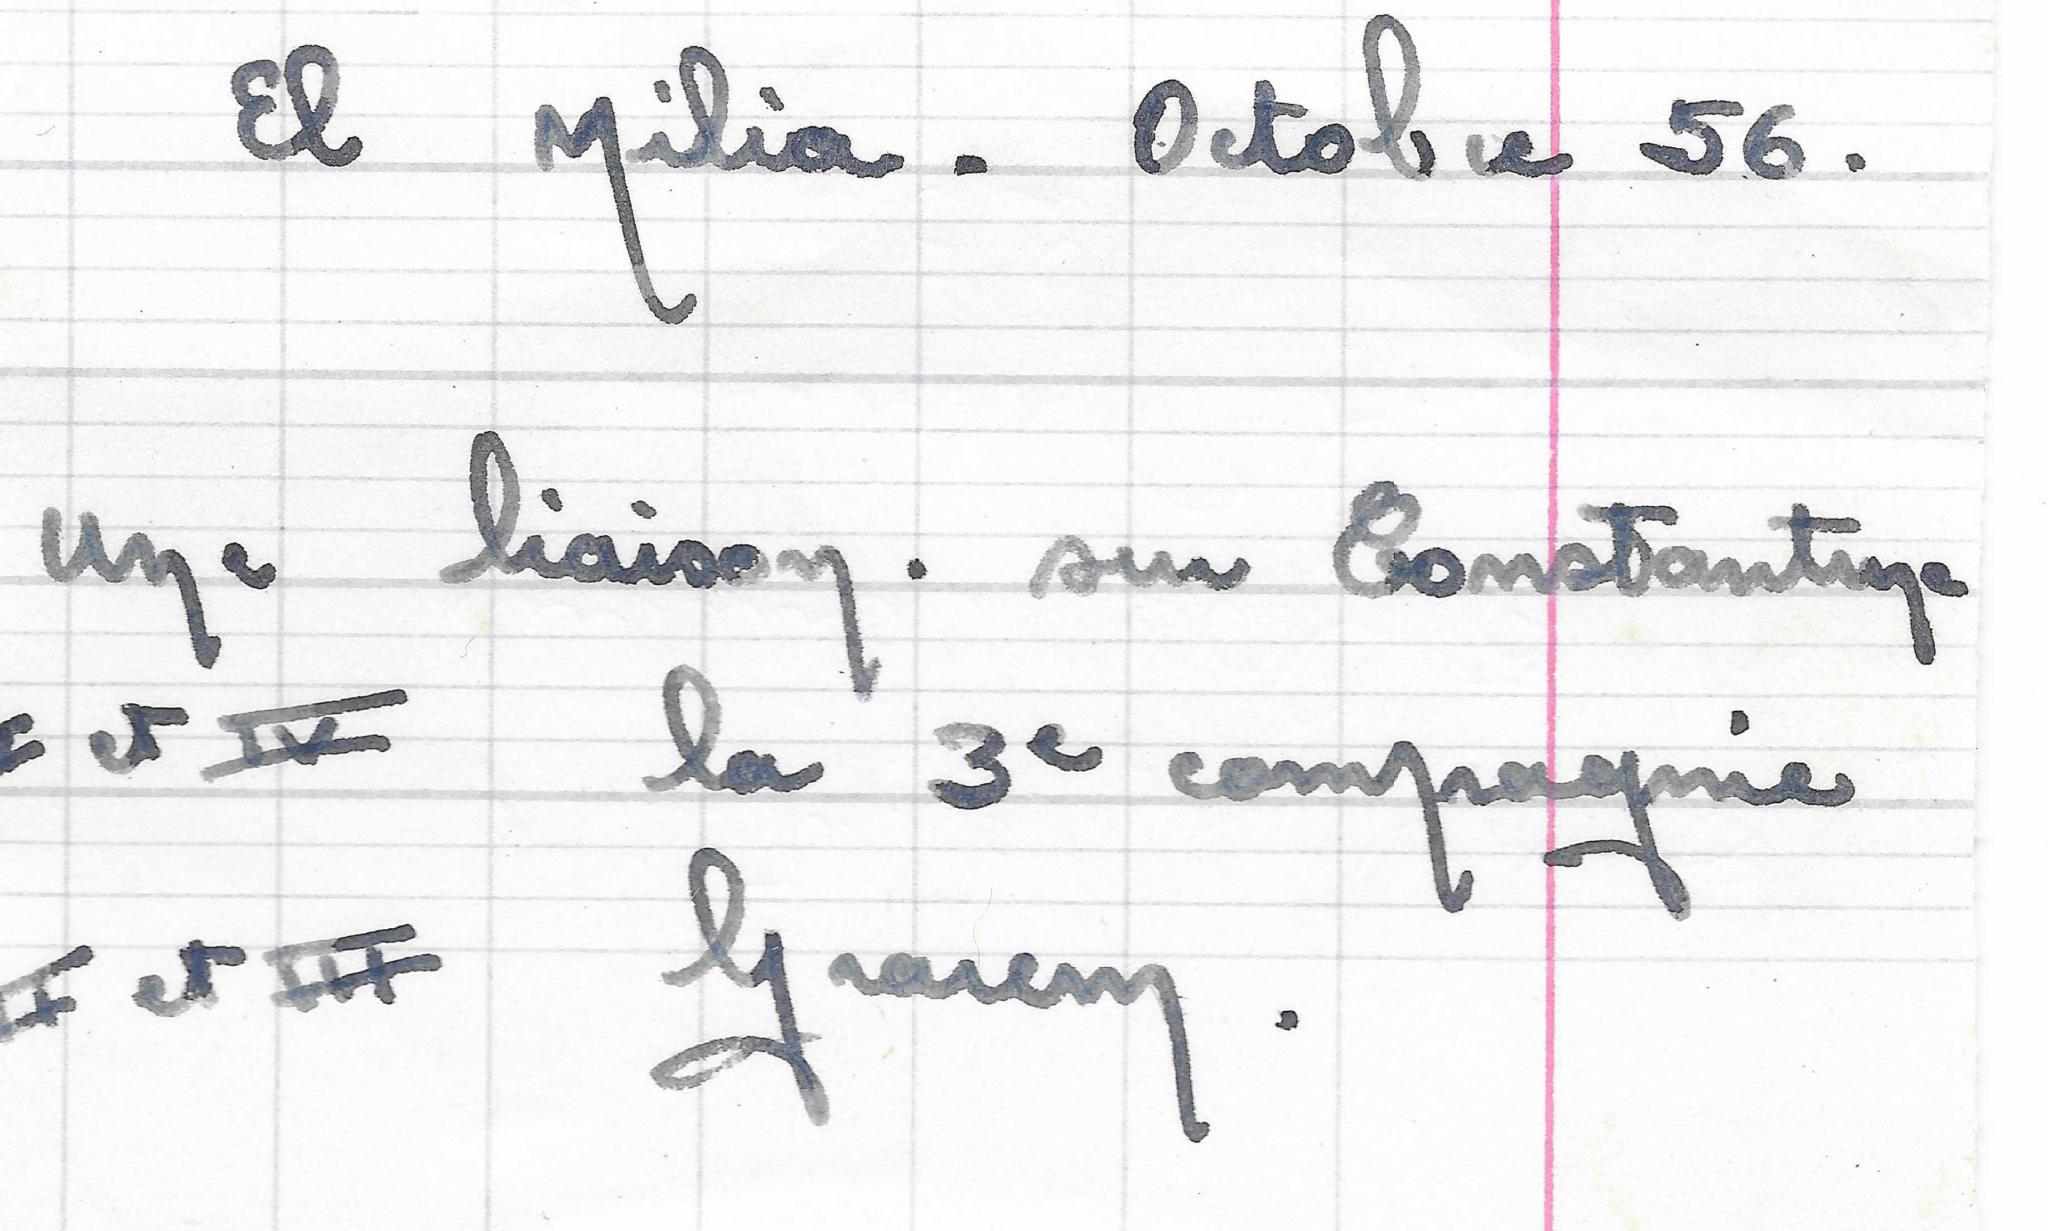 El Milia. Octobre 56.
Une liaison. sur Constantine
I et IV la 3e compagnie
II et III